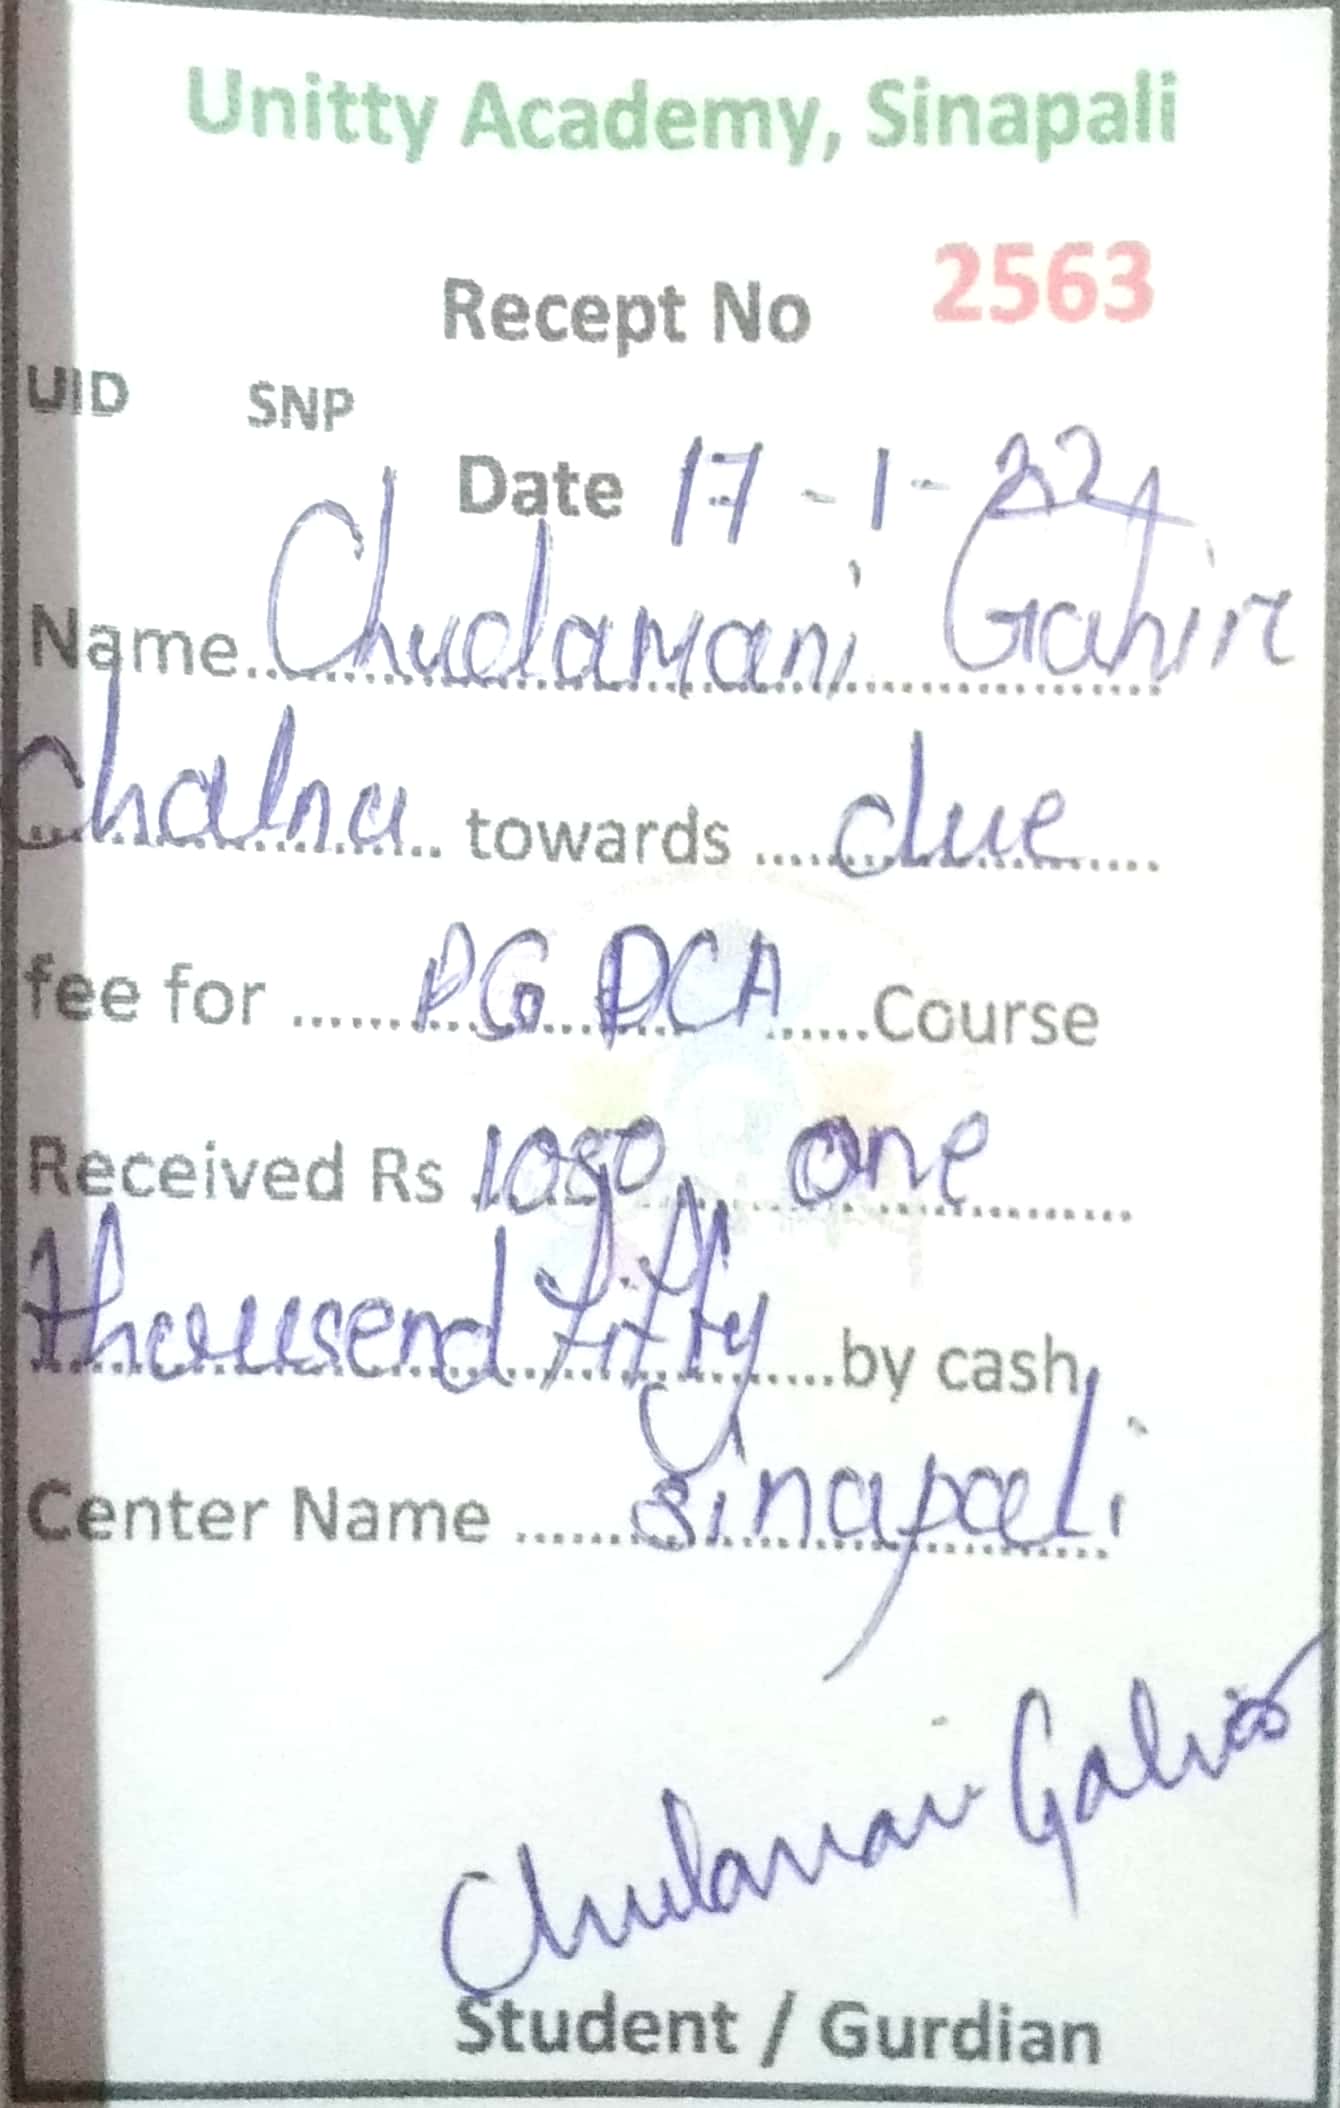 Unitty Academy, Sinapali
Recept No 2563
UID SNP
Date 17-1-22
Name..Chudamani Gahir
Chalna.. towards ....due....
fee for ......PG DCA......Course
Received Rs 1050, one
thousend fifty....by cash
Center Name ......sinapali
Chudamani Gahir
Student / Gurdian